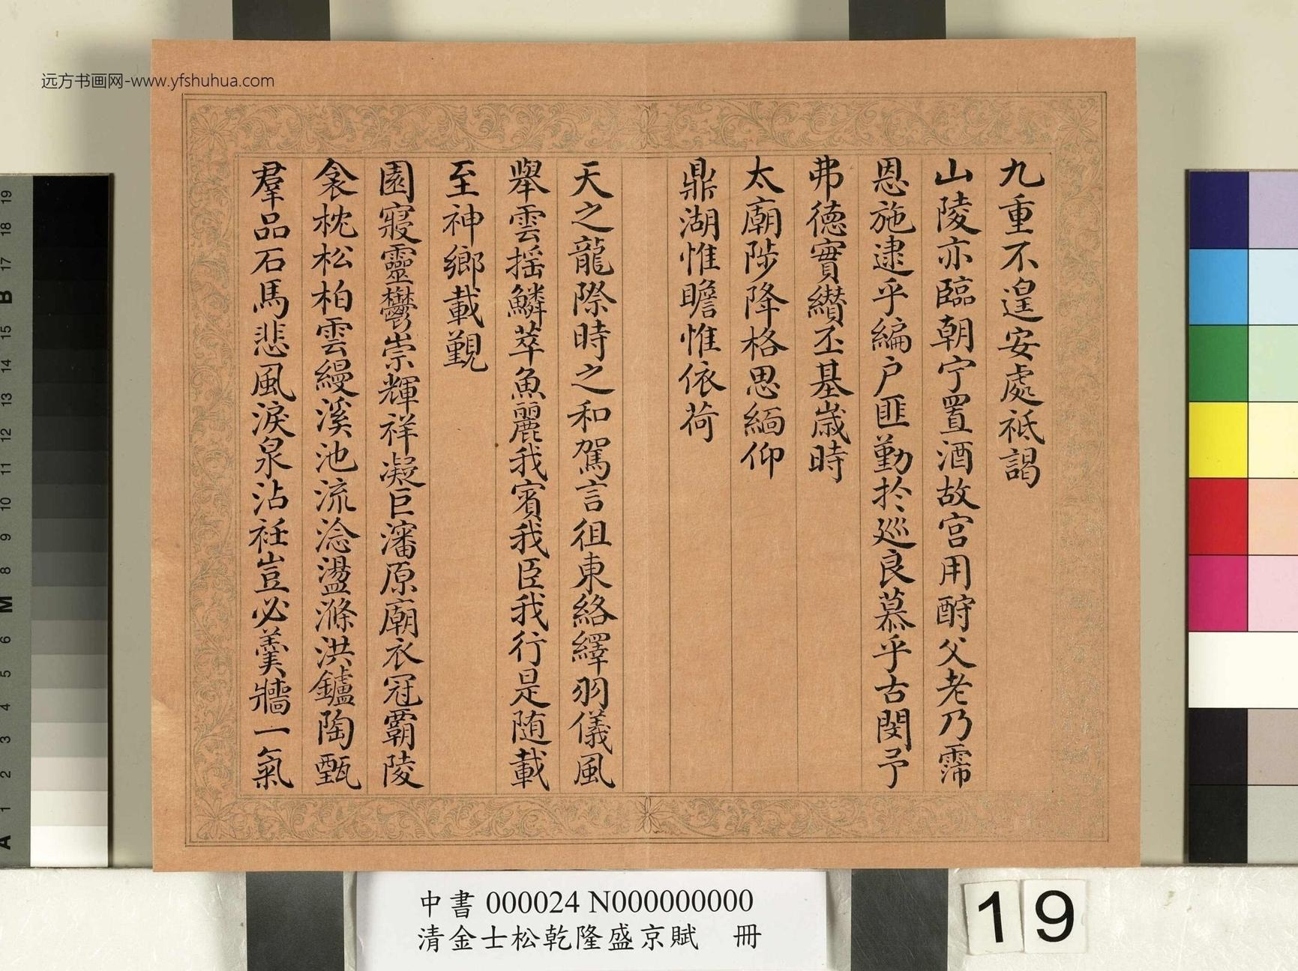 远方书画网-www.yfshuhua.com
九重不遑安處祗謁
山陵亦臨朝宁置酒故宫用酧父老乃霈
恩施逮乎編户匪勤扵廵良慕乎古閔予
弗德實纉丕基歲時
太廟陟降格思緬仰
鼎湖惟瞻惟依荷
天之龍際時之和駕言徂東絡繹羽儀風
舉雲揺鱗萃魚麗我賓我臣我行是随載
至神鄉載覲
園寢靈鬱崇輝祥凝巨瀋原廟衣冠霸陵
衾枕松柏雲縵溪池流淰盪滌洪鑪陶甄
羣品石馬悲風淚泉沾袵豈必羹牆一氣
19
18
17
B
15
14
13
12
11
10
9
8
M
6
5
4
3
2
1
A
中書 000024 N000000000
清金士松乾隆盛京賦 冊
19